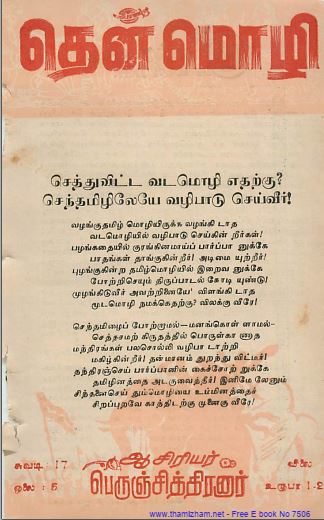 தென் மொழி
செத்துவிட்ட வடமொழி எதற்கு?
செந்தமிழிலேயே வழிபாடு செய்வீர்!
வழங்குதமிழ் மொழியிருக்க வழங்கி டாத
வடமொழியில் வழிபாடு செய்கின் றீர்கள்!
பழங்கதையில் குரங்கினமாய்ப் பார்ப்பா னுக்கே
பாதங்கள் தாங்குகின்றீர்! அடிமை யுற்றீர்!
புழங்குகின்ற தமிழ்மொழியில் இறைவ னுக்கே
போற்றிசெயும் திருப்பாடல் கோடி யுண்டு!
முழங்கிடுவீர் அவற்றினையே' விளங்கி டாத
மூடமொழி நமக்கெதற்கு? விலக்கு வீரே!
செந்தமிழைப் போற்றாமல்—மனங்கொள் ளாமல்—
செத்தசமற் கிருதத்தில் பொருள்கா ணாத
மந்திரங்கள் பலசொல்லி வழிபா டாற்றி
மகிழ்கின்றீர்! தன்மானம் துறந்து விட்டீர்!
தந்திரஞ்செய் பார்ப்பானின் கைச்சோற் றுக்கே
தமிழினத்தை அடகுவைத்தீர்! இனிமே லேனும்
சிந்தனைசெய் தும்மொழியை உம்மினத்தைச்
சிறப்புறவே காத்திடற்கு முனைகு வீரே!
சுவடி : 17
ஓலை : 5
ஆசிரியர்
பெருஞ்சித்திரனார்
விலை
உருபா 1-2
www.thamizham.net - Free E book No 7506